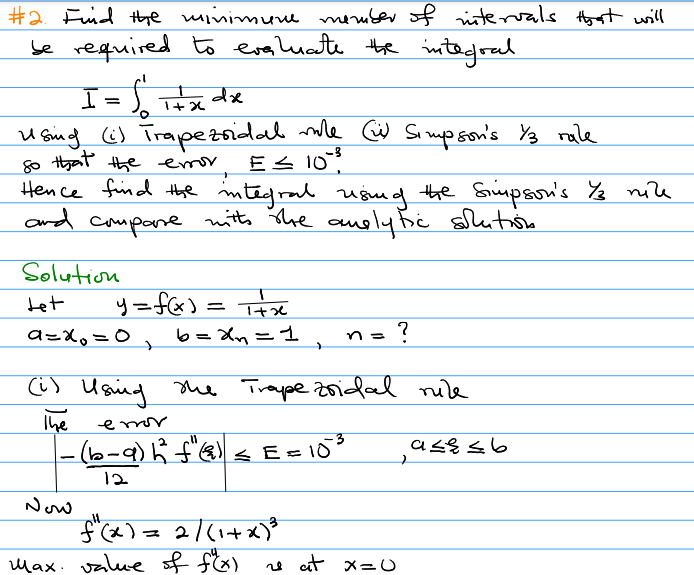 #2. Find the minimum number of intervals that will
be required to evaluate the integral
I = ∫₀¹ 1/(1+x) dx
Using (i) Trapezoidal rule (ii) Simpson's 1/3 rule
so that the error, E ≤ 10⁻³.
Hence find the integral using the Simpson's 1/3 rule
and compare with the analytic solution
Solution
Let y = f(x) = 1/(1+x)
a = x₀ = 0, b = xₙ = 1, n = ?
(i) Using the Trapezoidal rule
The error
|-(b-a) h² f''(ξ)/12| ≤ E = 10⁻³, a ≤ ξ ≤ b
Now
f''(x) = 2/(1+x)³
Max. value of f''(x) is at x=0